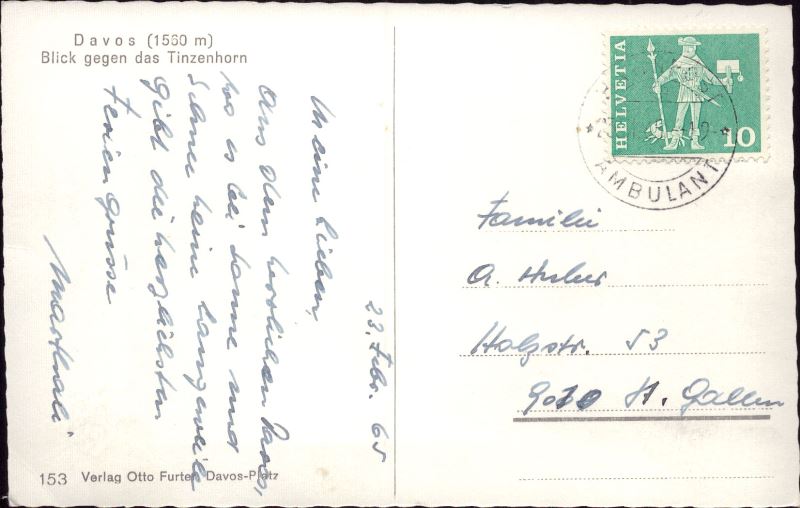 Davos (1560 m)
Blick gegen das Tinzenhorn
23. Febr. 65
Meine Lieben,
Aus dem herrlichen Davos,
wo es bei Sonne und
Schnee keine Langeweile
gibt die herzlichsten
Feriengrüsse
HELVETIA
10
AMBULANT
Familie
A. Huber
Holzstr. 53
9010 St. Gallen
153 Verlag Otto Furter, Davos-Platz